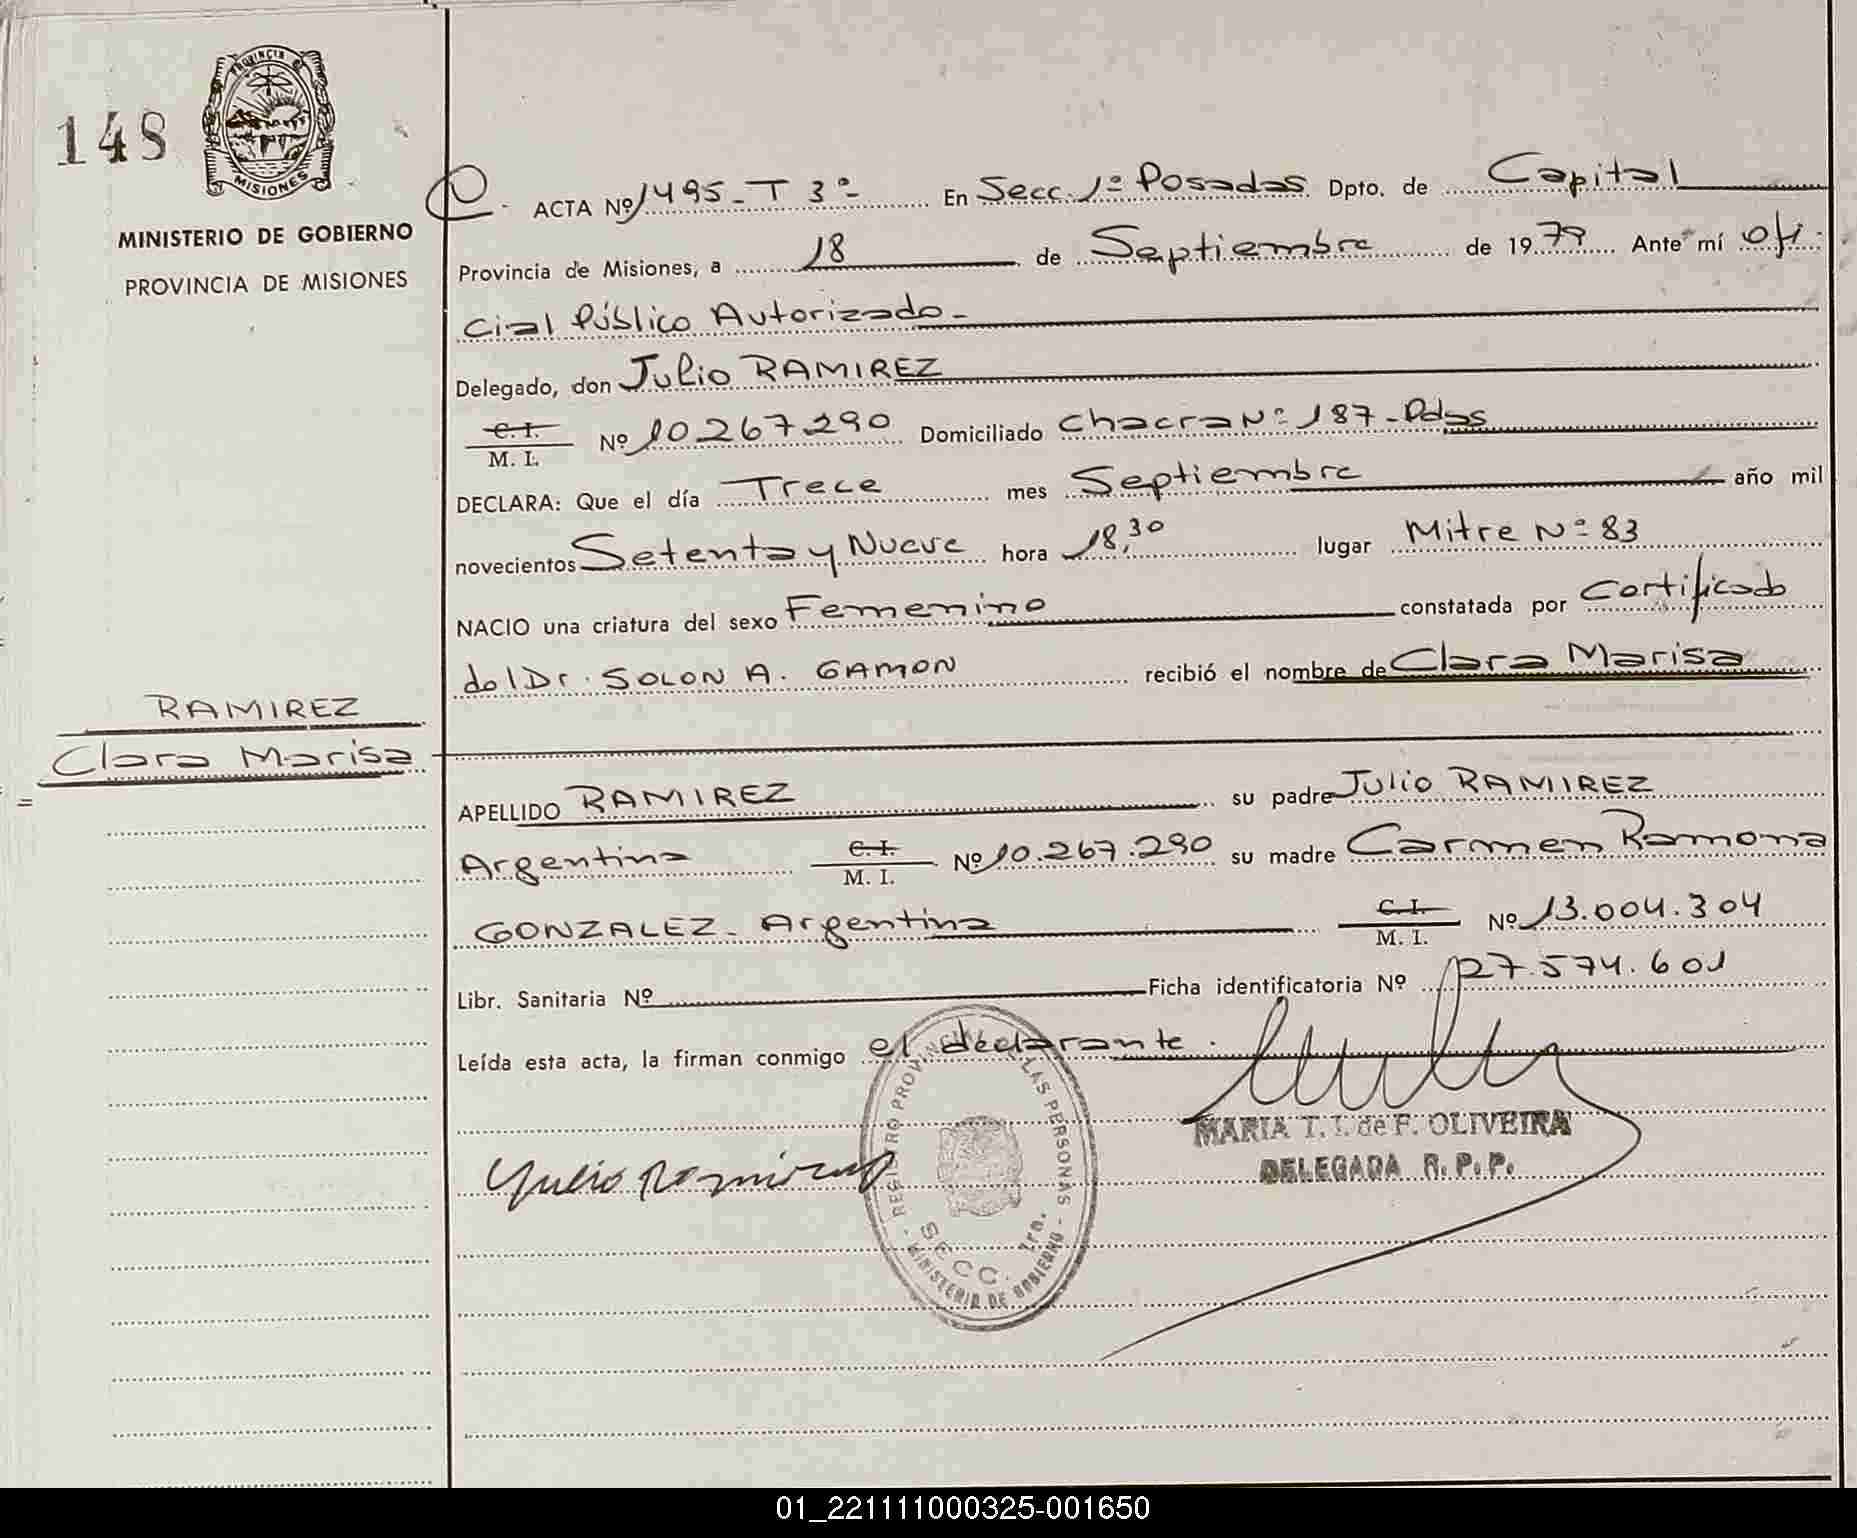 148
PROVINCIA DE
MISIONES
MINISTERIO DE GOBIERNO
PROVINCIA DE MISIONES
ACTA Nº 1495 - T 3º - En Secc. 1º Posadas Dpto. de Capital
Provincia de Misiones, a 18 de Septiembre de 1979 Ante mí ofi-
cial Público Autorizado -
Delegado, don Julio RAMIREZ
C. I.
M. I. Nº 10.267.290 Domiciliado Chacra Nº 187 - Pdas
DECLARA: Que el día Trece mes Septiembre año mil
novecientos Setenta y Nueve hora 18,30 lugar Mitre Nº 83
NACIO una criatura del sexo Femenino constatada por Certificado
del Dr. SOLON A. GAMON recibió el nombre de Clara Marisa
RAMIREZ
Clara Marisa
APELLIDO RAMIREZ su padre Julio RAMIREZ
Argentina C. I. M. I. Nº 10.267.290 su madre Carmen Ramona
GONZALEZ - Argentina C. I. M. I. Nº 13.004.304
Libr. Sanitaria Nº Ficha identificatoria Nº 27.574.601
Leída esta acta, la firman conmigo el declarante.
MARIA T. I. de F. OLIVEIRA
DELEGADA R. P. P.
Julio Ramirez
REGISTRO PROVINCIAL LAS PERSONAS
SECC. 1ra.
MINISTERIO DE GOBIERNO
01_221111000325-001650